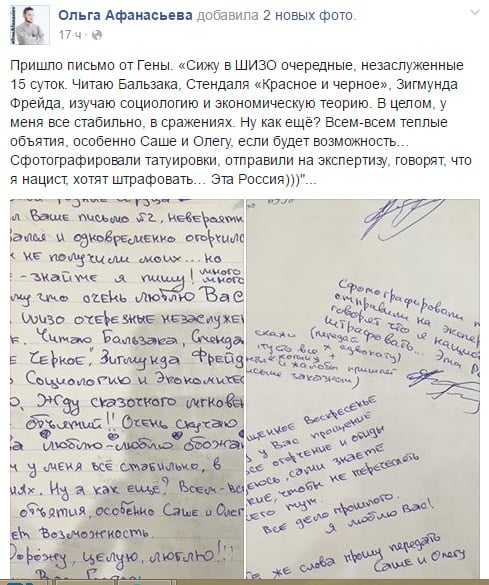 Ольга Афанасьева добавила 2 новых фото.
17 ч ·
Пришло письмо от Гены. «Сижу в ШИЗО очередные, незаслуженные
15 суток. Читаю Бальзака, Стендаля «Красное и черное», Зигмунда
Фрейда, изучаю социологию и экономическую теорию. В целом, у
меня все стабильно, в сражениях. Ну как ещё? Всем-всем теплые
объятия, особенно Саше и Олегу, если будет возможность…
Сфотографировали татуировки, отправили на экспертизу, говорят, что
я нацист, хотят штрафовать… Эта Россия)))"...
Ваше письмо 52, невероятн
и одновременно огорчилс
не получили моих... но
- знайте я пишу! много много
что очень люблю Вас
ШИЗО очередные незаслужен
Читаю Бальзака, Стенда
Черное", Зигмунда Фрейд
Социологию и Экономичес
Жду сказочного мгновен
объятий!! Очень скучаю
люблю-люблю обожа
у меня всё стабильно, в
иях. Ну а как ещё? Всем-вс
объятия, особенно Саше и Олег
ет возможность.
Дорожу, целую, люблю!!!
Сфотографировали
отправили на экспер
говорят что я нацист
штрафовать... Эта Р
скажи (передай
адвокату)
пусть все
и жалобы пришлёт
заказном)
щенное Воскресенье
у Вас прощение
все огорчение и обиды
юсь, сами знаете
чтобы не пересекать
его тут.
Все дело прошлого.
Я люблю Вас!
же слова прошу передать
Саше и Олегу